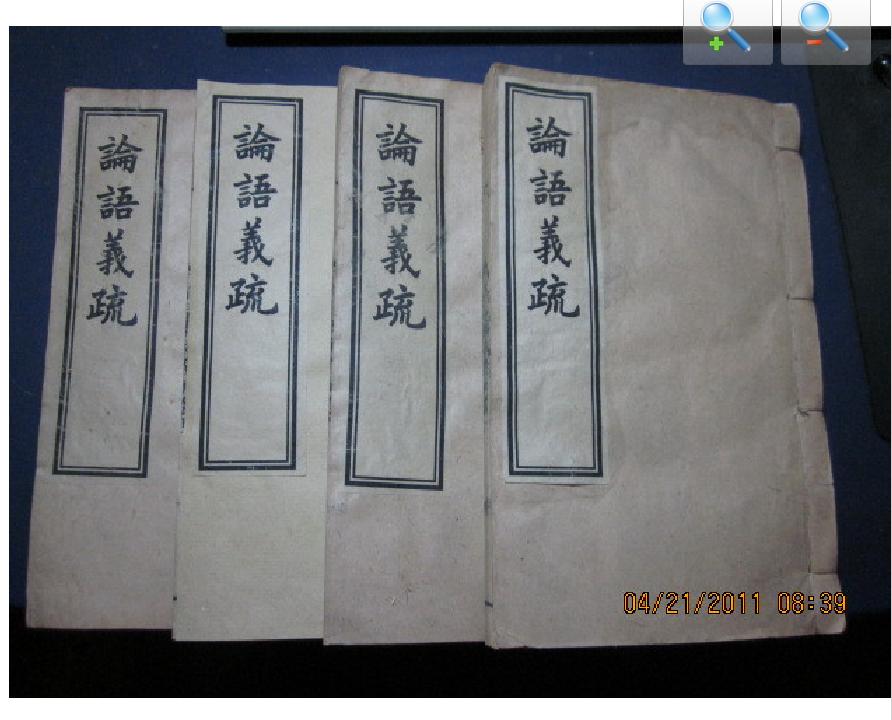 論語義疏
論語義疏
論語義疏
論語義疏
04/21/2011 08:39